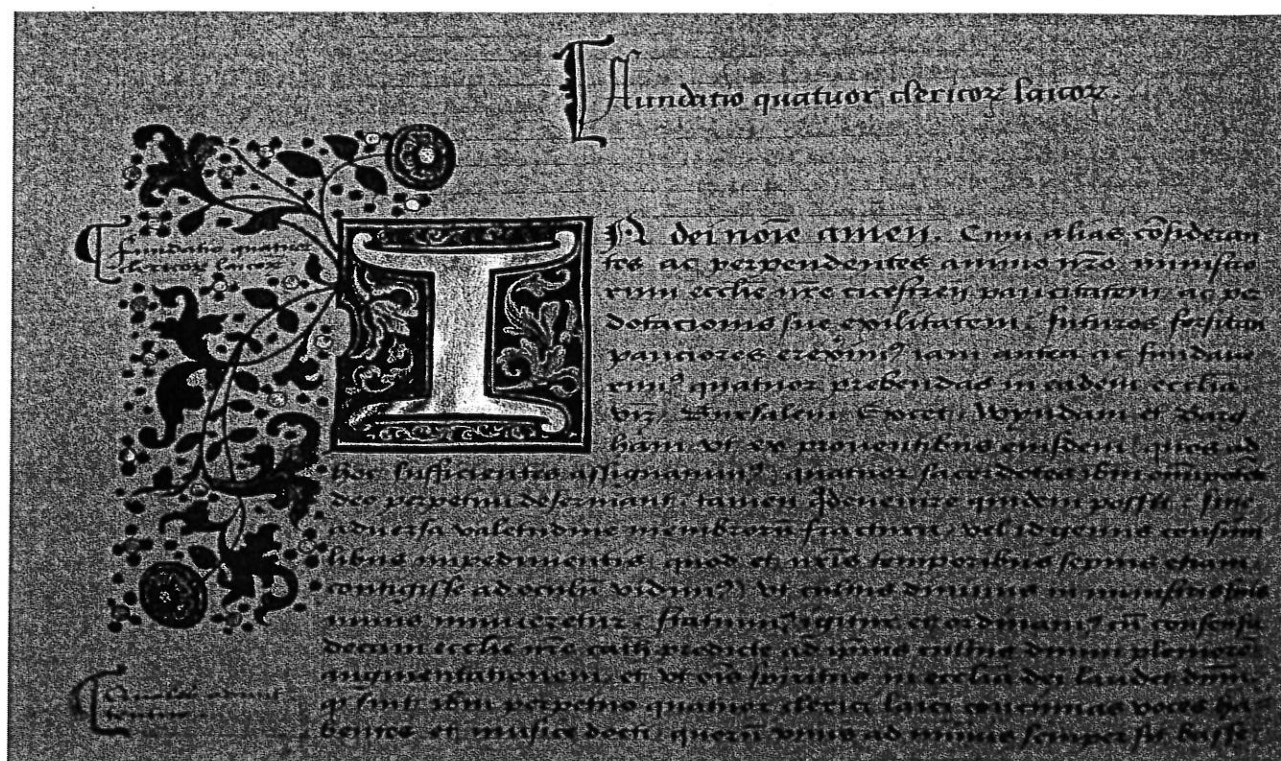 Fundatio quatuor clericoꝝ laicoꝝ.
Fundatio quatuor
clericoꝝ laicoꝝ
IN dei noīe amen. Cum alias cōsideran
tes ac perpendentes animo nr̄o ministro
rum ecclie nr̄e cicestreñ paucitatem ac pe
dotacionis sue exilitatem futuros forsitan
pauciores ereximꝰ iam antea ac fundaue
rimꝰ quatuor prebendas in eadem ecclīa
vizꝫ Bursalem Excet Wyndam et Barg
ham vt ex prouentibus eiusdem ques ad
hoc sufficientes assignauimꝰ quatuor sacerdotes ibm
deo perpetui deseruiant tamen euenire quidem possit siue
aduersa valetudine membrorū fractura vel id genus consimi
libus impedimentis quod et nr̄is temporibus sepius etiam
contigisse ad oculū vidimꝰ vt cultus diuinus in
minus minueretur Statuimꝰ igitur et ordinamꝰ cū consensu
decani ecclie nr̄e cath predicte ad ipsius cultus diuini pleniorē
augmentationem et vt oīs spiritus in ecclīa dei laudet dn̄m
ꝙ sint ibm perpetuo quatuor clerici laici concinnas voces ha
bentes et musice docti quorū vnus ad minus semper sit basse